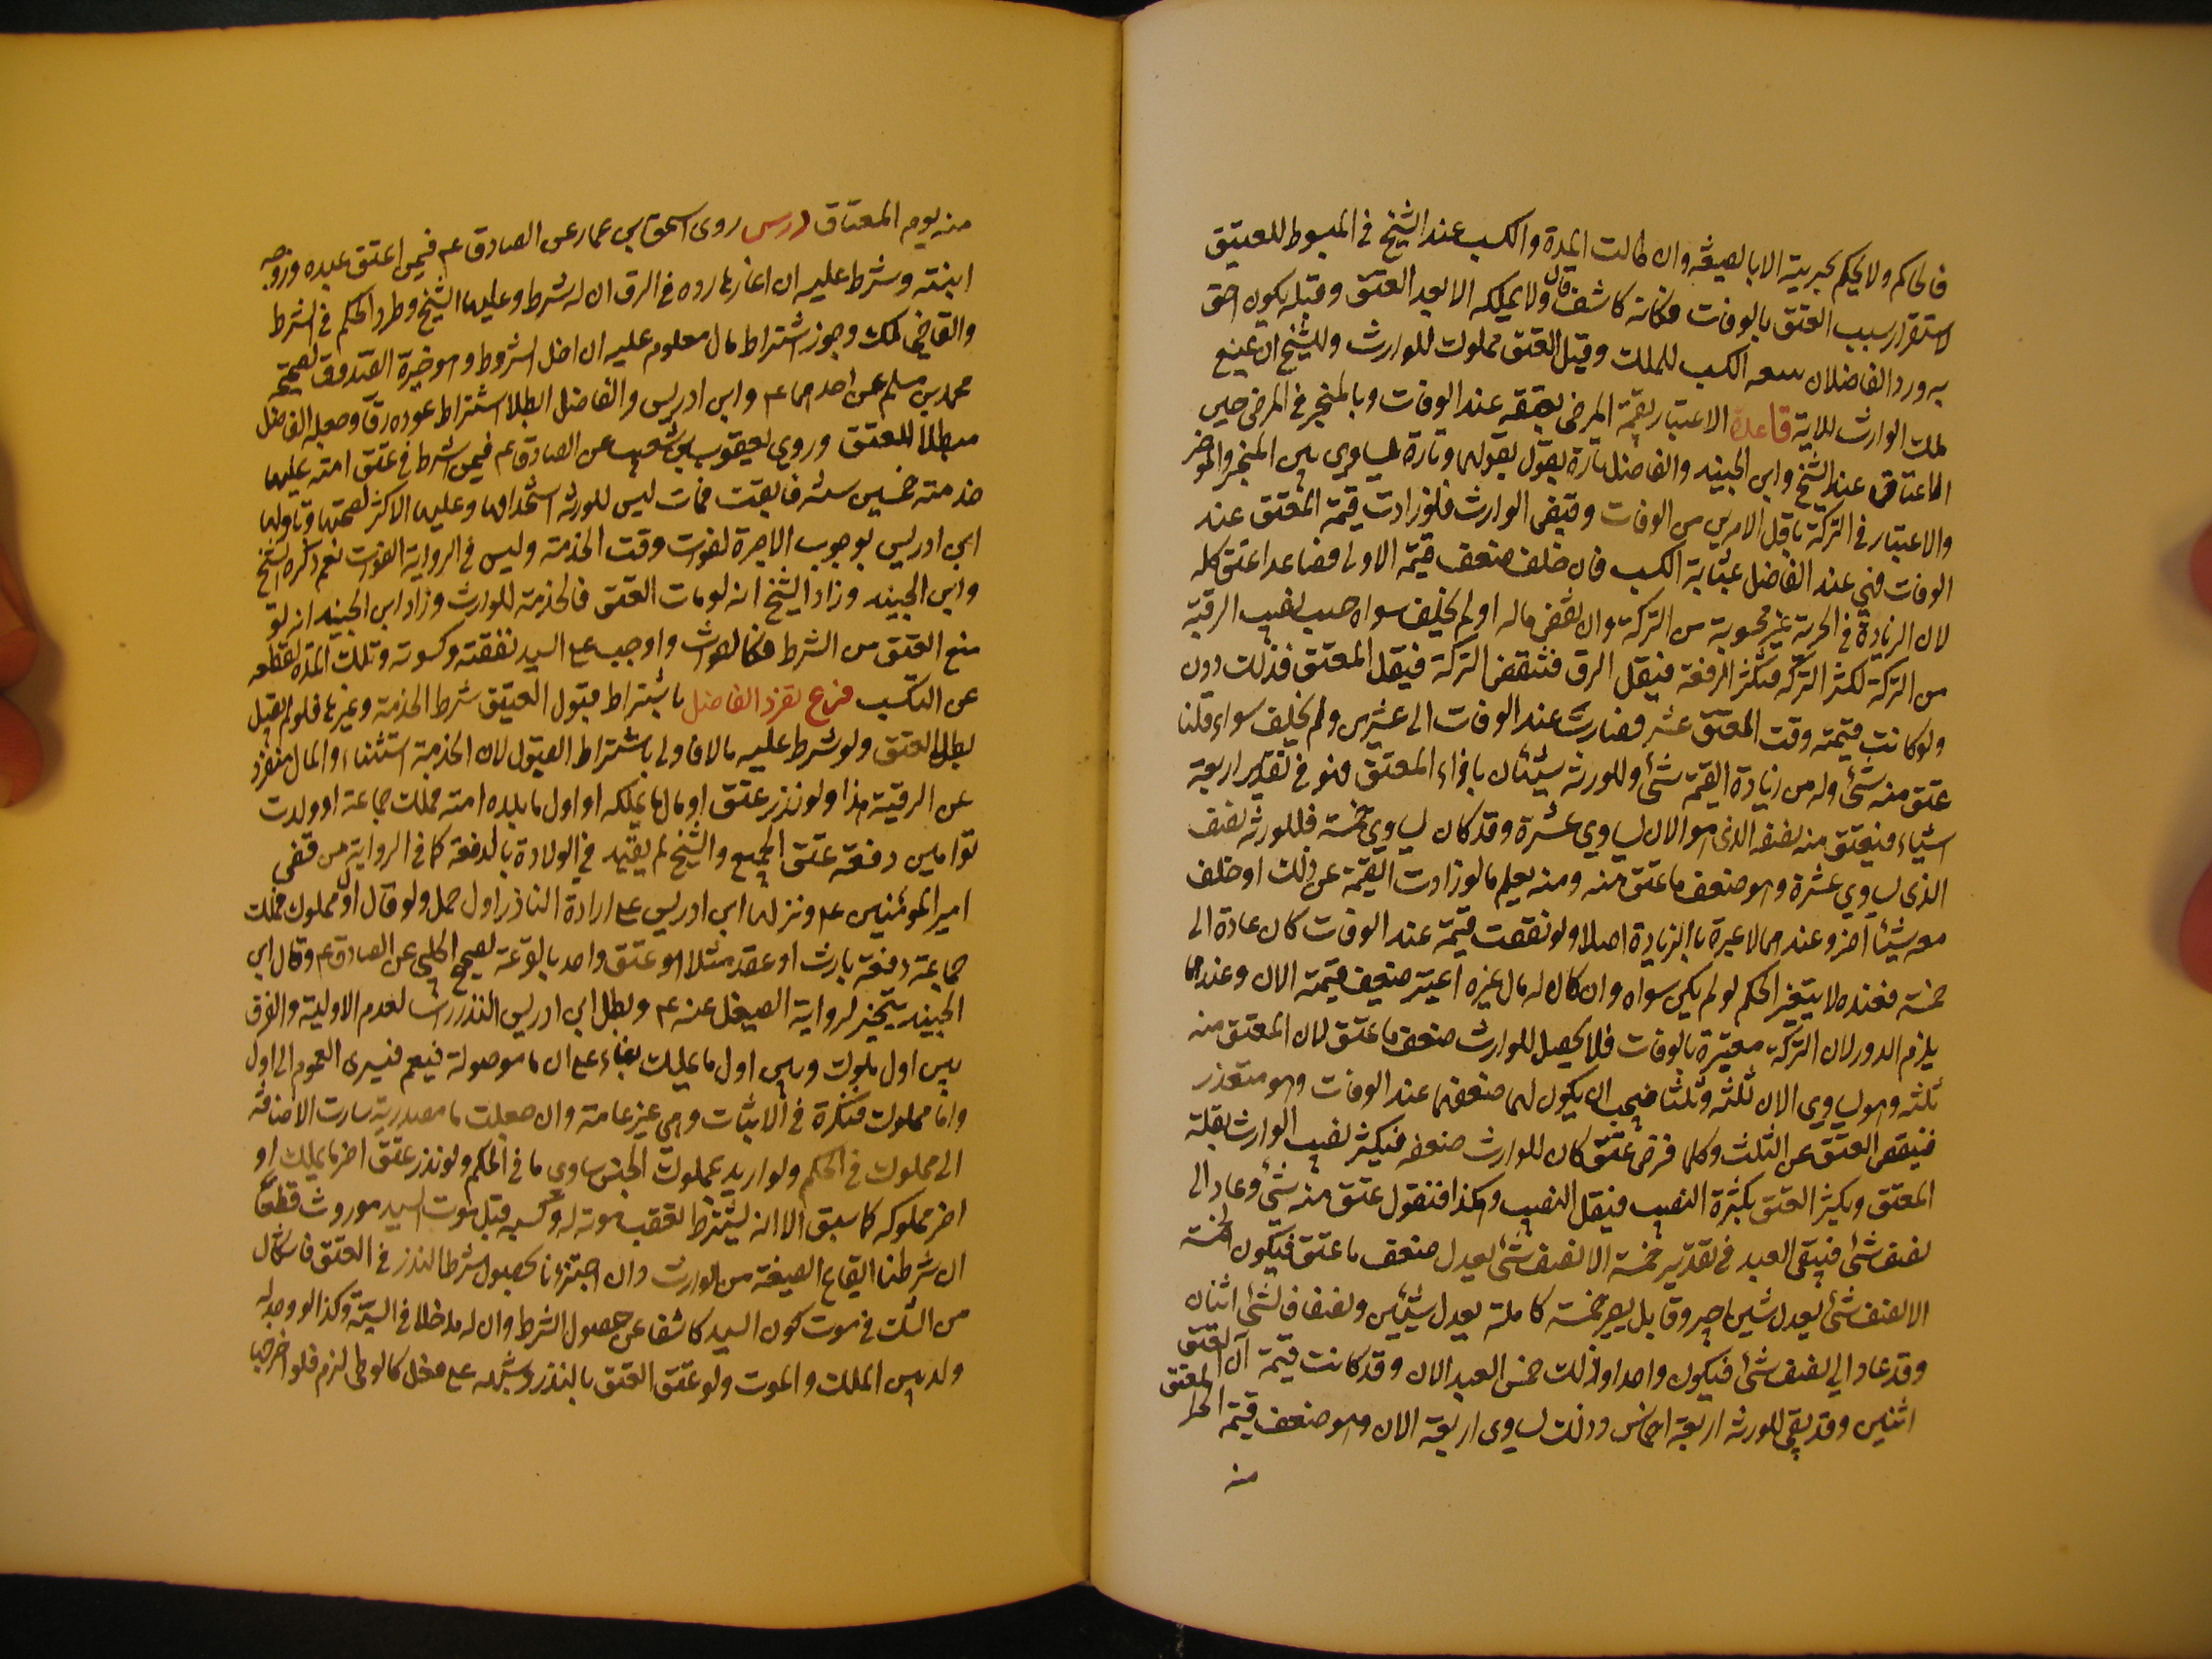 فالحاكم ولا يحكم بحريته الا بالصيغة وان طالت المدة والكسب عند الشيخ في المبسوط للعتيق
لاستقرار سبب العتق بالوفات فكانه كاشف قال ولا يملكه الا بعد العتق وقبله يكون احق
به ورد الفاضلان سعه الكسب للملك وقبل العتق مملوك للوارث وللشيخ ان يمنع
ملك الوارث للاية قاعدة الاعتبار بقيمة المرضى بعتقه عند الوفات وبالمنجز في المرض حين
الاعتاق عند الشيخ وابن الجنيد والفاضل تارة يقول بقولهما وتارة يساوي بين المنجز والمؤخر
والاعتبار في التركة باقل الامرين من الوفات وقبض الوارث فلو زادت قيمة المعتق عند
الوفات فهي عند الفاضل بمثابة الكسب فان خلف ضعف قيمة الاولى فصاعدا عتق كله
لان الزيادة في الحرية غير محسوبة من التركة وان نقص ماله او لم يخلف سواه حسب نصيب الرقية
من التركة لكثر التركة فتكثر الرقعة فيقل الرق فتنقص التركة فيقل المعتق فذلك دون
ولو كانت قيمته وقت المعتق عشر فصارت عند الوفات الى عشرين ولم يخلف سواه قلنا
عتق منه شئ وله من زيادة القيمة شئ وللورثة شيئان بازاء المعتق فهو في تقدير اربعة
اشياء فيعتق منه نصفه الذي هو الان يساوي عشرة وقد كان يساوي خمسة فللورثة نصف
الذي يساوي عشرة وهو ضعف ما عتق منه ومنه يعلم ما لو زادت القيمة عن ذلك او خلف
معه شيئا اخر وعندهما لا عبرة بالزيادة اصلا ولو نقصت قيمته عند الوفات كان عادة الى
خمسة فعنده لا يتغير الحكم لو لم يكن سواه وان كان له مال غيره اعتبر ضعف قيمته الان وعندهما
يلزم الدور لان التركة معتبرة بالوفات فلا يحصل للوارث ضعف ما عتق لان المعتق منه
ثلثه وهو يساوي الان ثلثه وثلثا فيجب ان يكون لهما ضعفها عند الوفات وهو متعذر
فينقص العتق عن الثلث وكلما فرض عتق كان للوارث ضعفه فيكثر نصيب الوارث بقلة
المعتق ويكثر العتق بكثرة النصيب فيقل النصيب وهكذا فنقول عتق منه شئ وعاد الى
نصف شئ فيبقى العبد في تقدير خمسة الا نصف شئ يعدل ضعف ما عتق فيكون الخمسة
الا نصف شئ يعدل شيئا اجبر وقابل يصير خمسة كاملة يعدل شيئين ونصفا فالشئ اثنان
وقد عاد الى نصف شئ فيكون واحدا وذلك خمس العبد الان وقد كانت قيمته آن العتق
اثنين وقد بقي للورثة اربعة اخماس وذلك يساوي اربعة الان وهو ضعف قيمة الجزء المعتق
منه
منه يوم المعتاق درس روى اسحق بن عمار عن الصادق عم فيمن اعتق عبده وزوجه
ابنته وشرط عليه ان اغارها رده في الرق ان له شرط وعليها الشيخ وطرد الحكم في الشرط
والقاضي كذلك وجوز اشتراط مال معلوم عليه ان اخل الشروط وهو خيرة الصدوق لصحيح
محمد بن مسلم عن احدهما عم وابن ادريس والفاضل ابطلا اشتراط عوده رقا وجعله الفاضل
مبطلا للعتق وروى يعقوب بن شعيب عن الصادق عم فيمن شرط في عتق امته عليها
خدمته خمسين سنه فابقت فمات ليس للورثة استخدامها وعليها الاكثر لصحتها وتاولها
ابن ادريس بوجوب الاجرة لفوات وقت الخدمة وليس في الرواية الفوات نعم ذكره الشيخ
وابن الجنيد وزاد الشيخ انه لو مات العتق فالخدمة للوارث وزاد ابن الجنيد انه لو
منع العتق من الشرط فكالموت واوجب على السيد نفقته وكسوته وتلك المدة لقطعه
عن التكسب فرع تفرد الفاضل باشتراط قبول العتيق شرط الخدمة وغيرها فلو لم يقبل
بطل العتق ولو شرط عليه مالا فاولى باشتراط القبول لان الخدمة استثناء والمال منفرد
عن الرقية هذا ولو نذر عتق اول ما يملكه او اول ما يلده امته فملك جماعة او ولدت
توامين دفعة عتق الجميع والشيخ لم يقيد في الولادة بالدفعة كما في الرواية من قضى
امير المومنين عم ونزلها ابن ادريس على ارادة الناذر اول حمل ولو قال اول مملوك فملك
جماعة دفعة بارث او عقد مثلا هو عتق واحد بالقرعة لصحيح الحلبي عن الصادق عم وقال ابن
الجنيد يتخير لرواية الصيقل عنه عم وبطل ابن ادريس النذر راسا لعدم الاولية والفرق
بين اول مملوك وبين اول ما يملك بناء على ان ما موصولة فيعم فيسرى العموم الى اول
واما مملوك فنكرة في الاثبات وهي غير عامة وان جعلت ما مصدرية سارت الاضافة
الى مملوك في الحكم ولو اريد بمملوك الجنس ساوى ما في الحكم ولو نذر عتق اخر ما يملك او
اخر مملوكه كما سبق الا انه يشترط لعقب موته له وكسبه قبل موت السيد موروث قطعا
ان شرطنا ايقاع الصيغة من الوارث وان اجتزءنا بحصول شرط النذر في العتق فاشكال
من الشك في موت كون السيد كاشفا عن حصول الشرط وان له مدخلا في السببية وكذا لو وجد له
ولد بين الملك والموت ولو عتق العتق بالنذر وشبهه على فعل كالوطى لزم فلو اخرجها